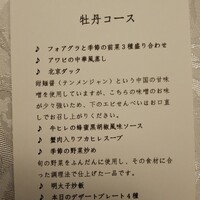 牡丹コース
♪ フォアグラと季節の前菜3種盛り合わせ
♪ アワビの中華風蒸し
♪ 北京ダック
甜麺醤（テンメンジャン）という中国の甘味
噌を使用していますが、こちらの味噌のお味
が少々強いため、下のエビせんべいはお口直
しでお召し上がりください。
♪ 牛ヒレの蜂蜜黒胡椒風味ソース
♪ 蟹肉入りフカヒレスープ
♪ 季節の野菜炒め
旬の野菜をふんだんに使用し、その食材に合
った調理法で仕上げた一品です。
♪ 明太子炒飯
♪ 本日のデザートプレート4種